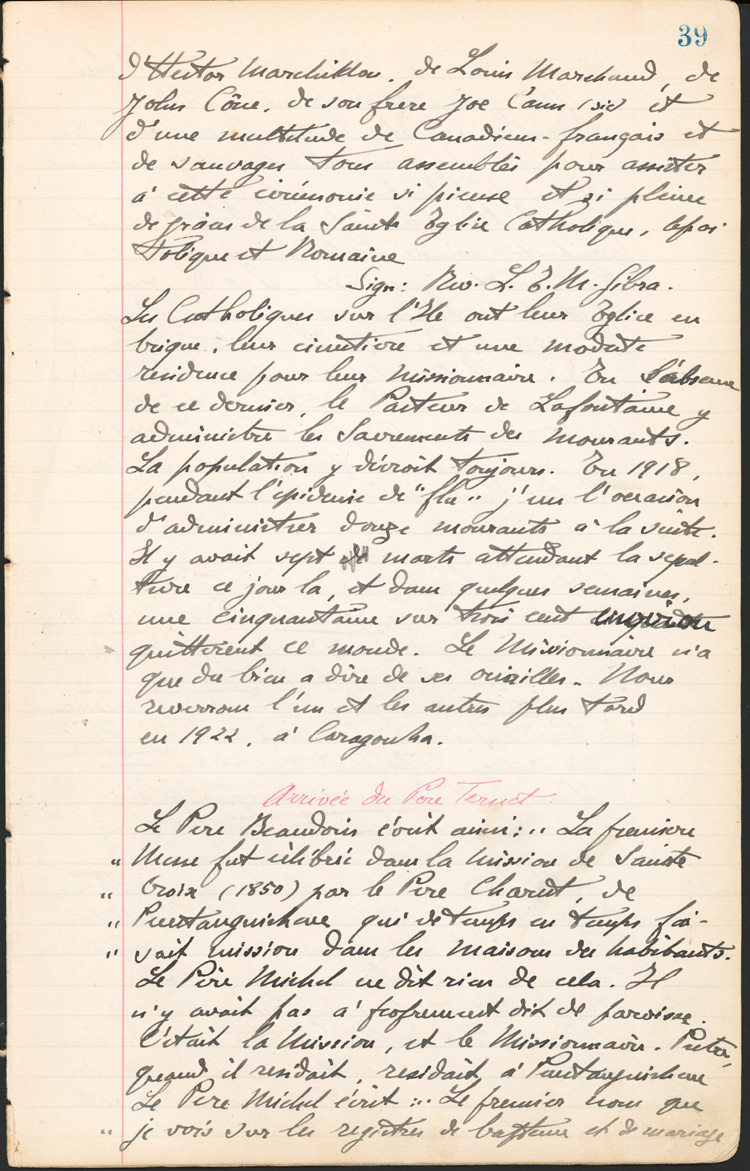 39
d'Hector Marchildon, de Louis Marchand, de
John Cône, de son frere Joe Cann (sic) et
d'une multitude de Canadiens-français et
de sauvages tous assemblés pour assister
à cette cérémonie si pieuse et si pleine
de grâces de la Sainte Eglise Catholique, Apos
tolique et Romaine
Sign: Rev. L. E. M. Gibra.
Les Catholiques sur l'Ile ont leur Eglise en
brique, leur cimetiere et une modeste
résidence pour leur missionnaire. En l'absence
de ce dernier, le Pasteur de Lafontaine y
administre les Sacrements des mourants.
La population y décroit toujours. En 1918,
pendant l'épidemie de "flu" j'eus l'occasion
d'administrer douze mourants à la suite.
Il y avait sept morts attendant la sepul-
ture ce jour la, et dans quelques semaines,
une cinquantaine sur trois cent
quitterent ce monde. Le Missionnaire n'a
que du bien a dire de ses ouailles. Nous
reverrons l'un et les autres plus tard
en 1922, à Caragouha.
Arrivée du Pere Ternet
Le Pere Beaudoin écrit ainsi: "La premiere
" Messe fut célébrée dans la mission de Sainte
" Croix (1850) par le Pere Charest, de
" Penetanguishene qui de temps en temps fai-
" sait mission dans les maisons des habitants.
Le Père Michel ne dit rien de cela. Il
n'y avait pas à proprement dit de paroisse.
C'était la Mission, et le Missionnaire. Pretre,
quand il residait, residait à Penetanguishene
Le Pere Michel écrit: "Le premier nom que
" je vois sur les registres de bapteme et de mariage